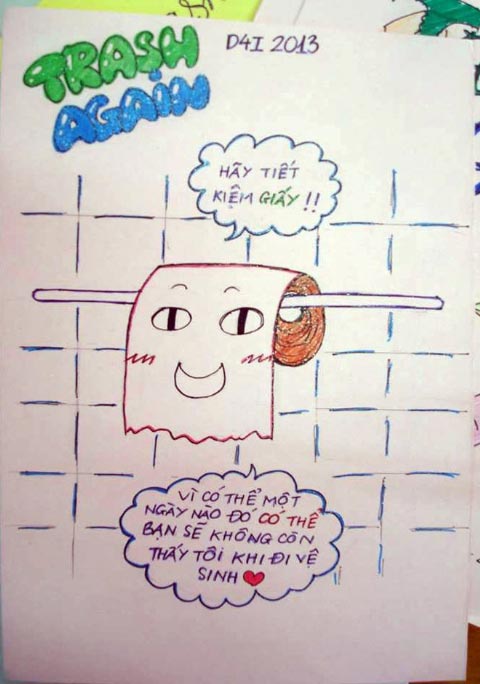 TRASH
AGAIN
D4I 2013
HÃY TIẾT
KIỆM GIẤY !!
VÌ CÓ THỂ MỘT
NGÀY NÀO ĐÓ CÓ THỂ
BẠN SẼ KHÔNG CÒN
THẤY TÔI KHI ĐI VỆ
SINH